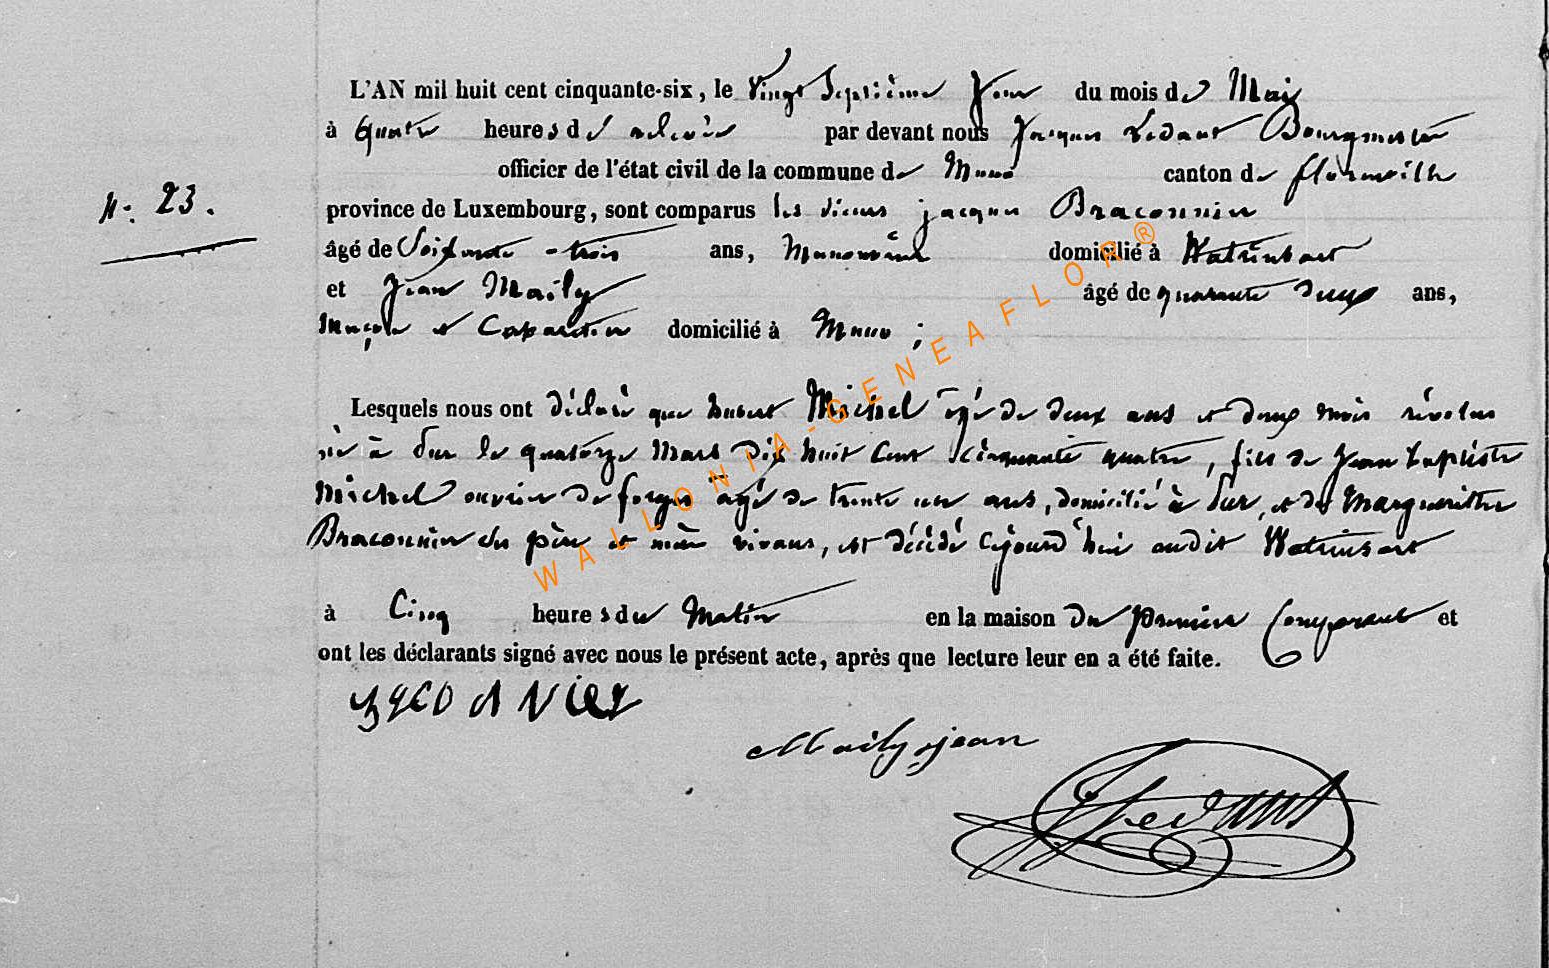 L'AN mil huit cent cinquante-six, le Vingt Septième Jour du mois de Mai
à quatre heures de relevée par devant nous Jacques Ledant Bourgmestre
officier de l'état civil de la commune de Muno canton de florenville
N°. 23.
province de Luxembourg, sont comparus les sieurs jacques Braconnier
âgé de Soixante-trois ans, Manouvrier domicilié à Watrinsart
et Jean Maily âgé de quarante deux ans,
Maçon et Cabaretier domicilié à Muno ;
Lesquels nous ont déclaré que hubert Michel âgé de deux ans et deux mois révolus
né à le quatorze Mars Dix huit Cent cinquante quatre, fils de Jean baptiste
Michel ouvrier de forges âgé de trente un ans, domicilié à , et de Marguerithe
Braconnier ses père et mère vivans, est décédé Cejourd'hui audit Watrinsart
à Cinq heures du Matin en la maison du premier Comparant et
ont les déclarants signé avec nous le présent acte, après que lecture leur en a été faite.
Maily jean
J Ledant
WALLONIA-GENEAFLOR®